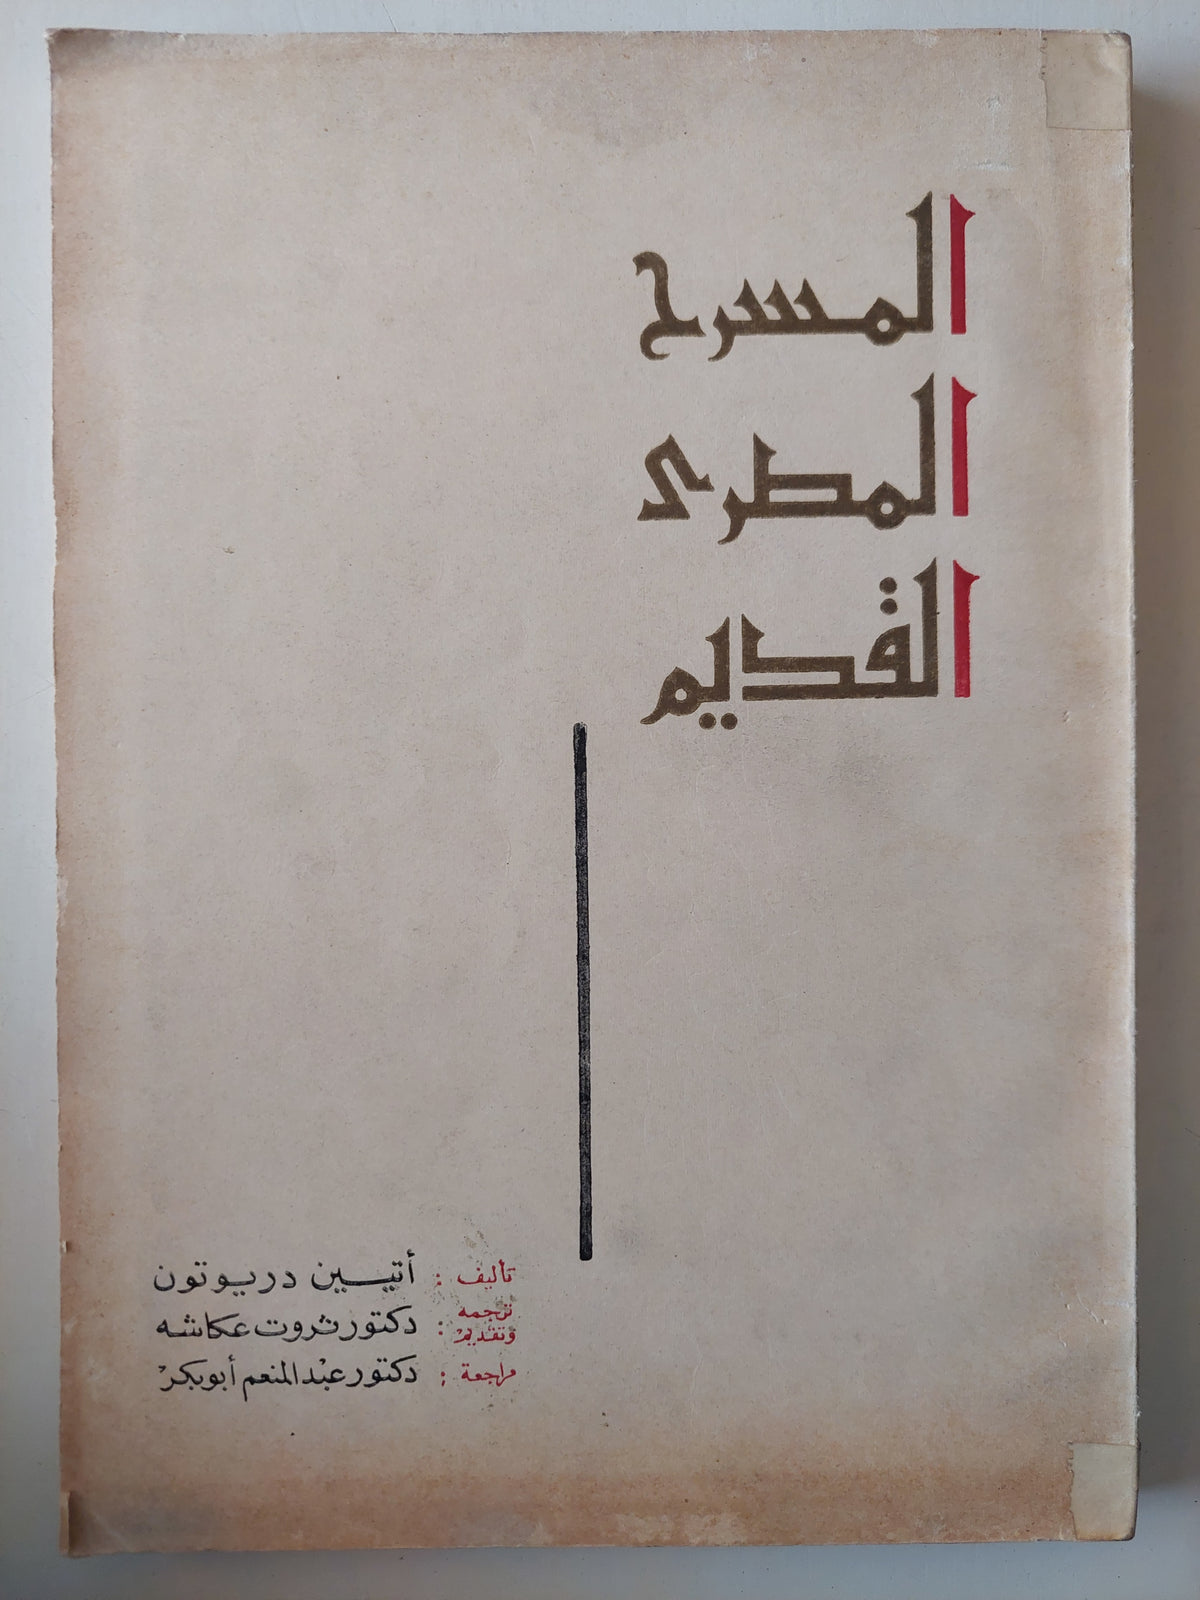 المسرح
المصرى
القديم
تأليف : أتيين دريوتون
ترجمه وتقديم : دكتور ثروت عكاشه
مراجعة : دكتور عبد المنعم أبو بكر